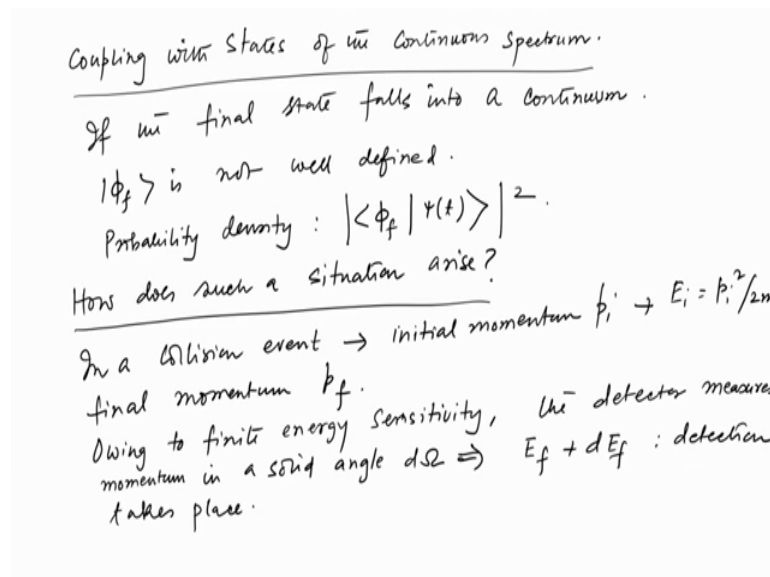 Coupling with states of the Continuous Spectrum.
If the final state falls into a continuum.
|ϕ_f> is not well defined.
Probability density : |<ϕ_f | ψ(t)>|².
How does such a situation arise?
In a collision event → initial momentum p_i → E_i = p_i²/2m
final momentum p_f.
Owing to finite energy sensitivity, the detector measures
momentum in a solid angle dΩ ⇒ E_f + dE_f : detection
takes place.